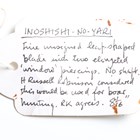 INOSHISHI-NO-YARI
Fine unsigned leaf shaped
blade with two elongated
window piercings. No shaft.
H Russell Robinson considered
this would be used for boar
hunting